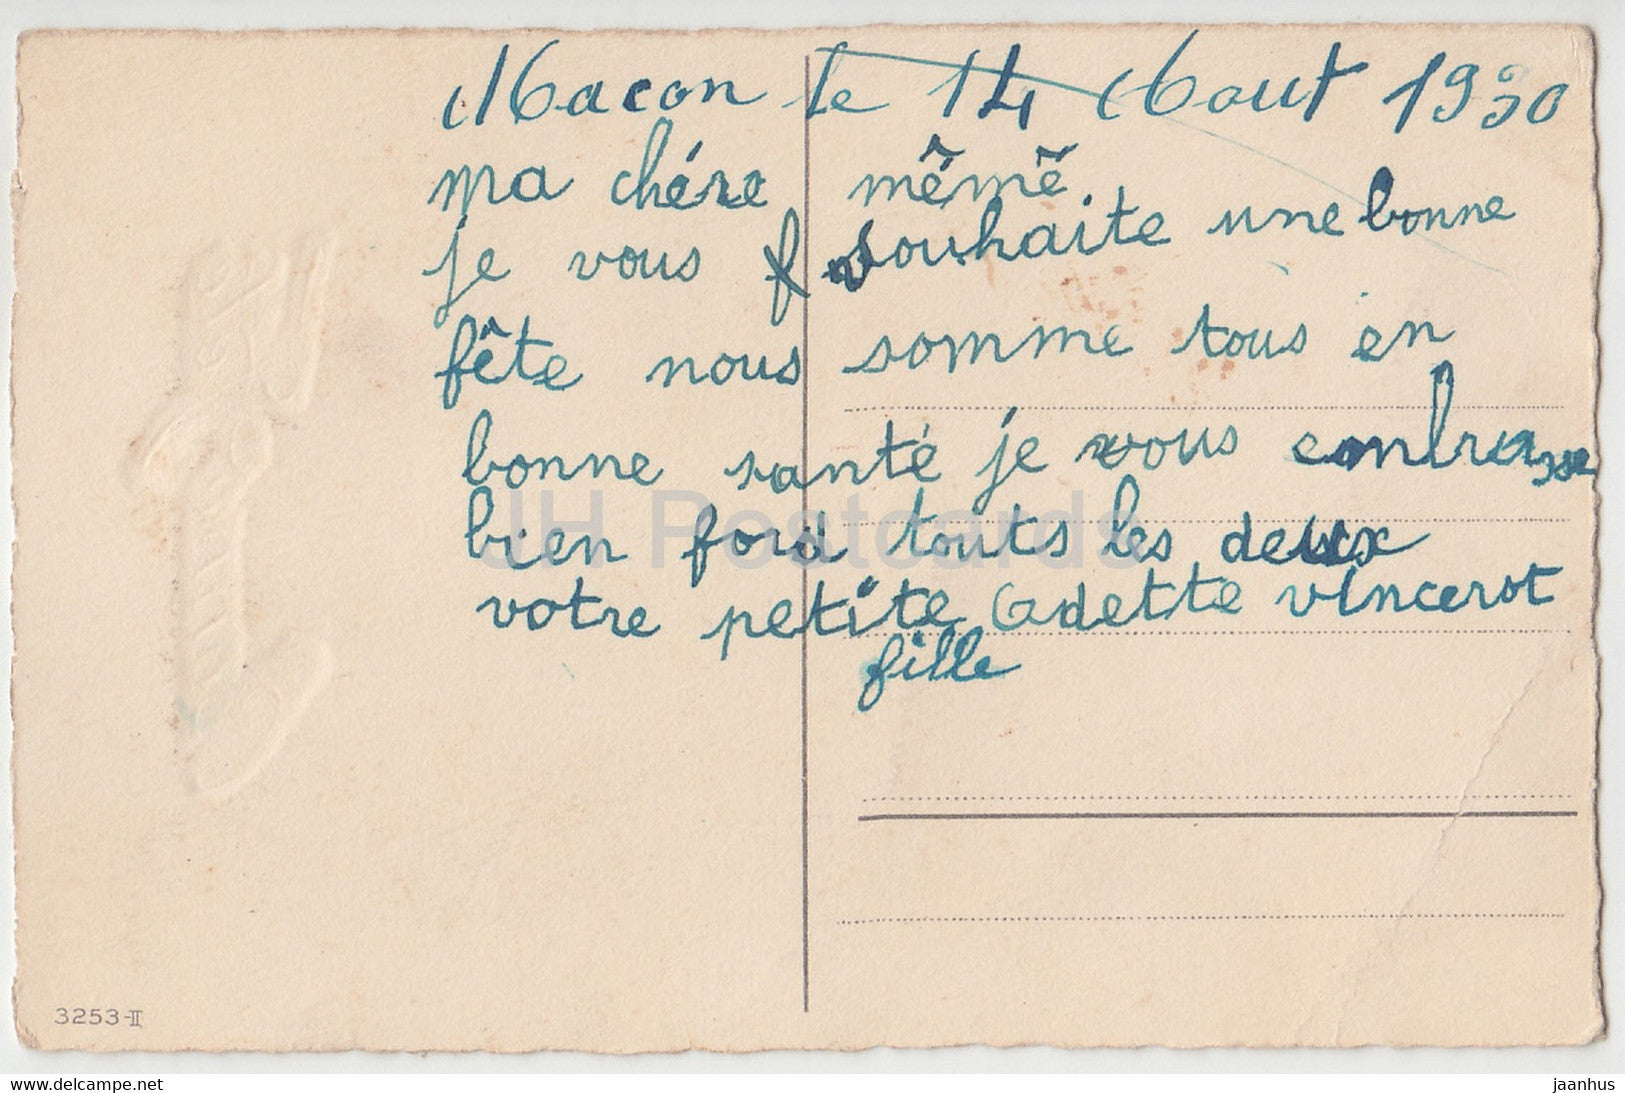 Macon le 14 Aout 1930
ma chére mémé
je vous souhaite une bonne
fête nous somme tous en
bonne santé je vous embrasse
bien ford touts les deux
votre petite Odette vincerot
fille
JH Postcards
3253-II
www.delcampe.net
jaanhus